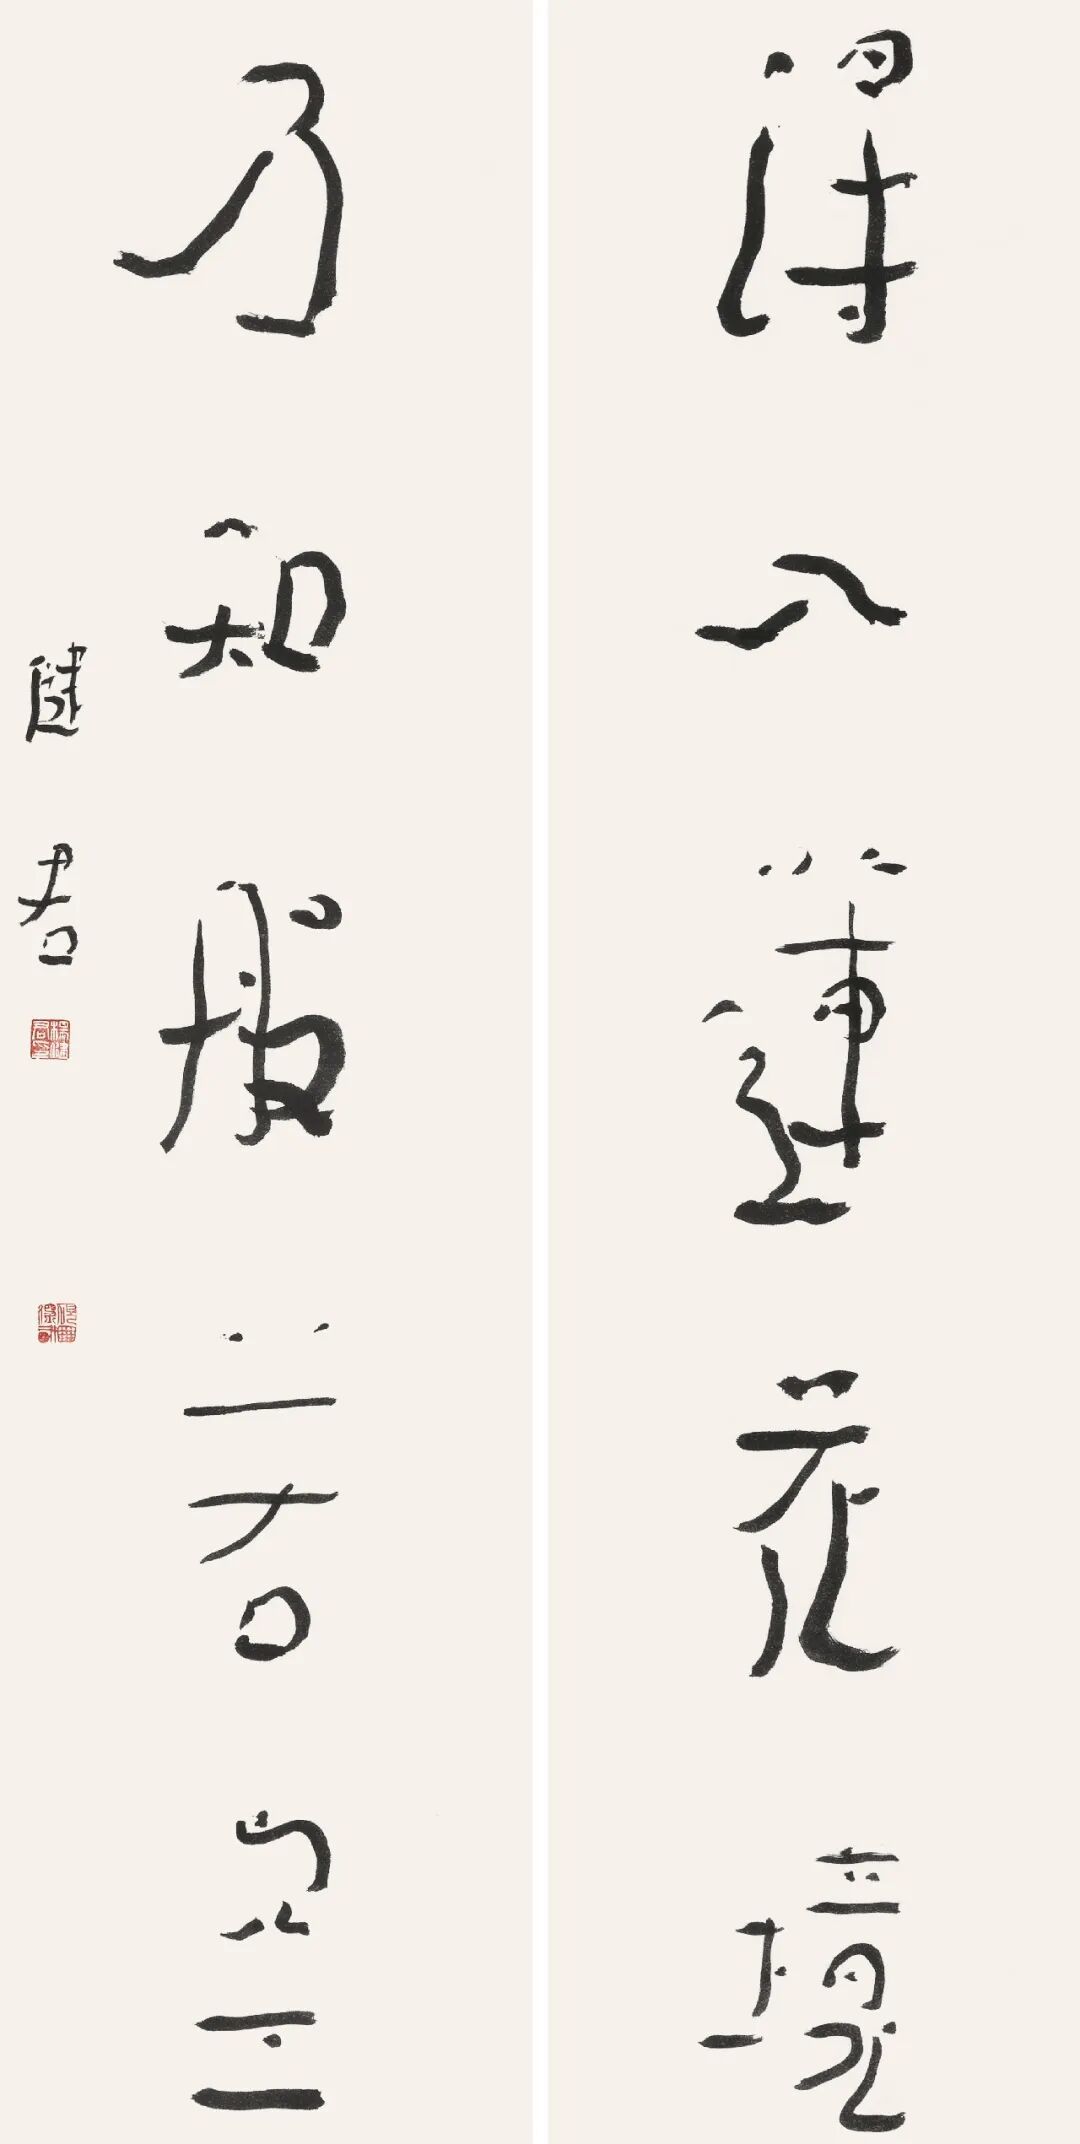 得入蓮花境
乃知般若空
健君